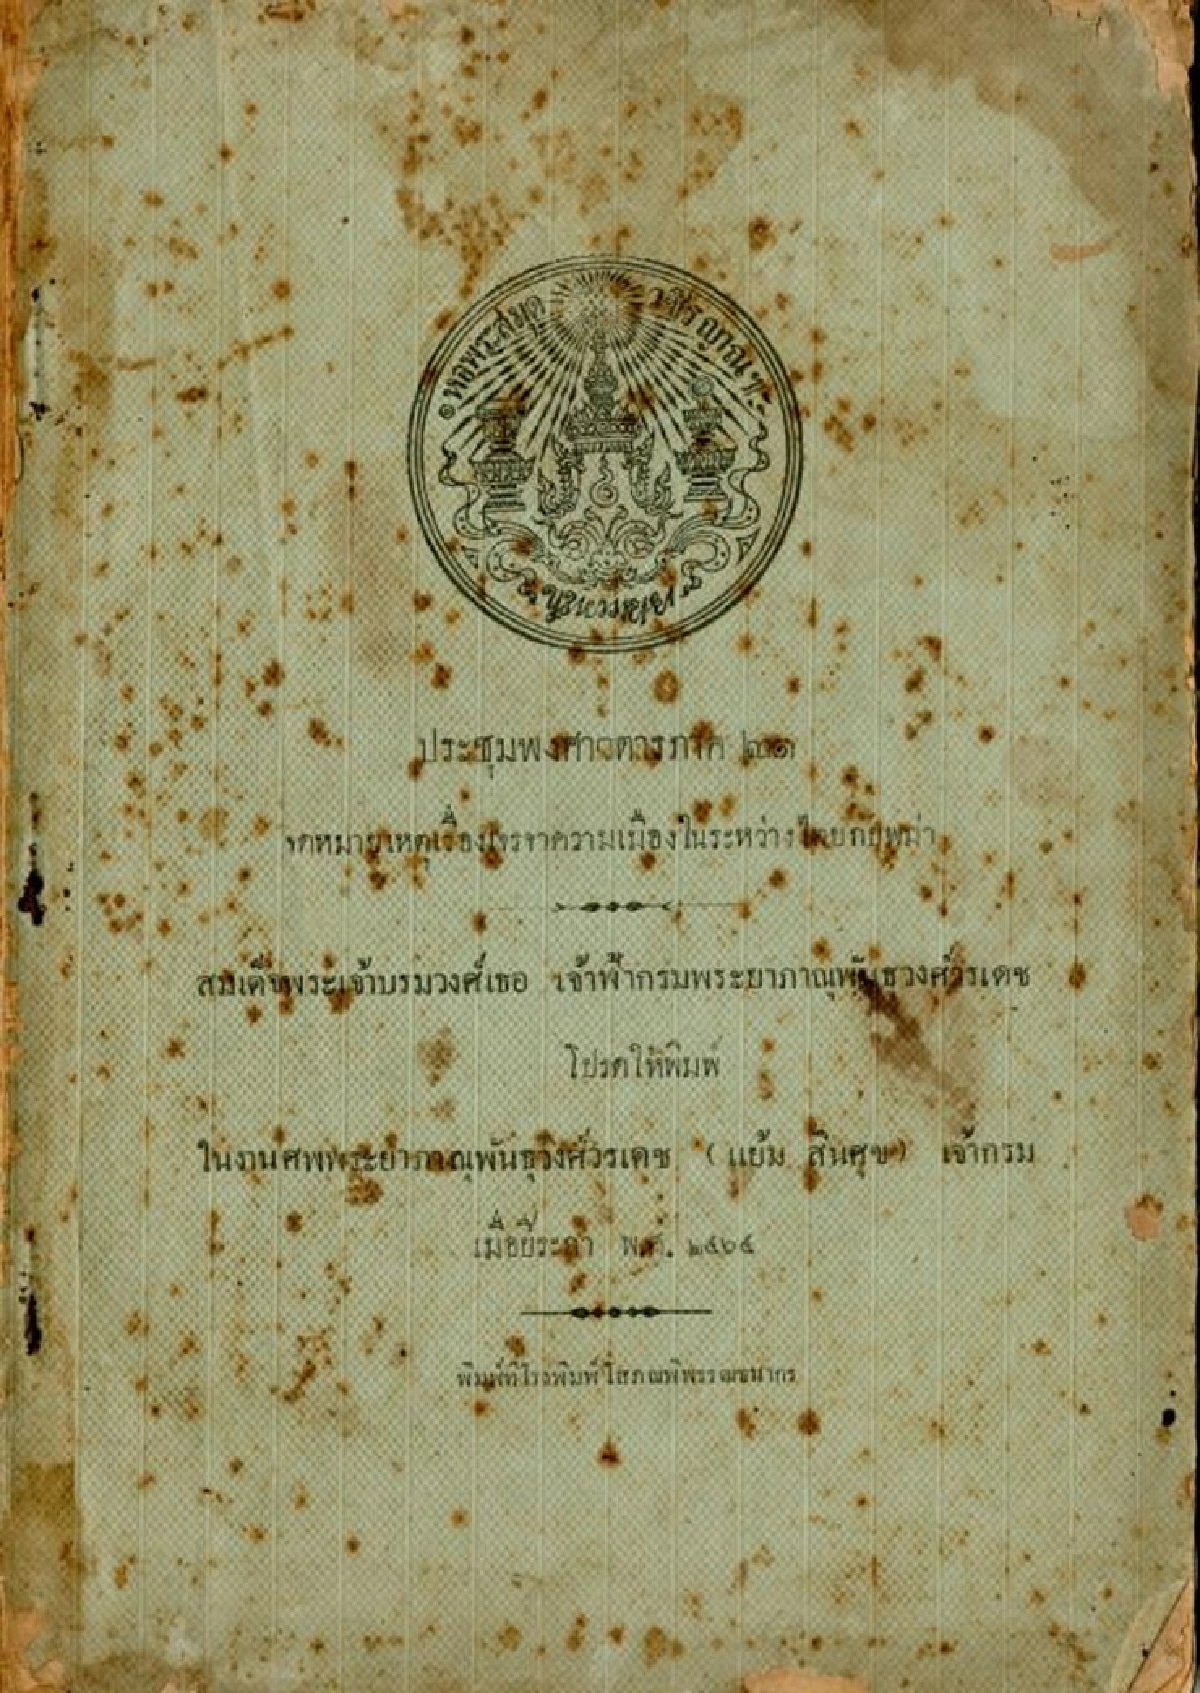 หอพระสมุด วชิรญาณ
ประชุมพงศาวดารภาค ๒๑
จดหมายเหตุเรื่องเจรจาความเมืองในระหว่างไทยกับพม่า
สมเด็จพระเจ้าบรมวงศ์เธอ เจ้าฟ้ากรมพระยาภาณุพันธุวงศ์วรเดช
โปรดให้พิมพ์
ในงานศพพระยาภาณุพันธุวงศ์วรเดช (แย้ม สินศุข) เจ้ากรม
เมื่อปีระกา พ.ศ. ๒๔๖๔
พิมพ์ที่โรงพิมพ์โสภณพิพรรฒธนากร